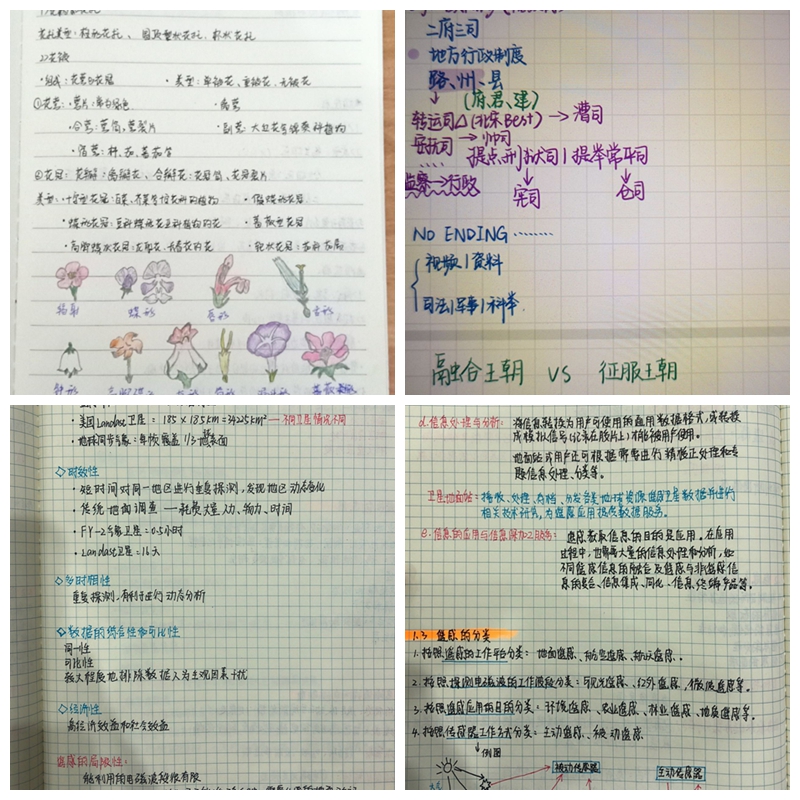 花托类型：柱形花托、圆顶型花托、杯状花托
2)花被
·组成：花萼与花冠 ·类型：单被花、重被花、无被花
①花萼：萼片：常为绿色
·合萼：萼筒、萼裂片 ·副萼：大红花等锦葵科植物
·宿萼：柿、茄、番茄等
类型：十字型花冠：
·蝶形花冠： ·蔷薇型花冠
辐射 蝶形 唇形 舌形
钟形
二府三司
地方行政制度
路、州、县
(府、君、建)
转运司△(北宋Best)→漕司
安抚司→帅司
提点刑狱司|提举常平司
监察→行政 宪司 仓司
NO ENDING········
视频|资料
司法|军事|科举
融合王朝 VS 征服王朝
·美国Landast卫星=185×185km=34225km²—不同卫星情况不同
·地球同步气象：每次覆盖1/3地球表面
◇时效性
·短时间对同一地区进行重复探测，发现地区动态变化
·传统地面调查——耗费大量人力、物力、时间
·FY-2气象卫星=0.5小时
·Landast卫星=16天
◇多时相性
重复探测，有利于进行动态分析
◇数据的综合性和可比性
同一性
可比性
极大程度地排除数据人为主观因素干扰
◇经济性
高经济效益和社会效益
遥感的局限性：
能利用的电磁波段很有限
d.信息处理与分析：将信息转换为用户可使用的通用数据格式，或转换
成模拟信号(记录在胶片上)才能被用户使用。
地面站或用户还可根据需要进行精校正处理和专
题信息处理、分类等。
卫星地面站：接收、处理、存档、分发各类地球资源遥感卫星数据并进行
相关技术研究，为遥感应用提供数据服务。
e.信息的应用与信息深加工服务：遥感获取信息的目的是应用。在应用
过程中，也需要大量的信息处理和分析，如
不同遥感信息的融合及遥感与非遥感信
息的复合、信息集成、同化、信息终端产品等。
1.3 遥感的分类
1.按照遥感的工作平台分类：地面遥感、航空遥感、航天遥感、。
2.按照探测电磁波的工作波段分类：可见光遥感、红外遥感、微波遥感等。
3.按照遥感应用的目的分类：环境遥感、农业遥感、林业遥感、地质遥感等。
4.按照传感器工作方式分类：主动遥感、被动遥感
例图
被动传感器 主动传感器